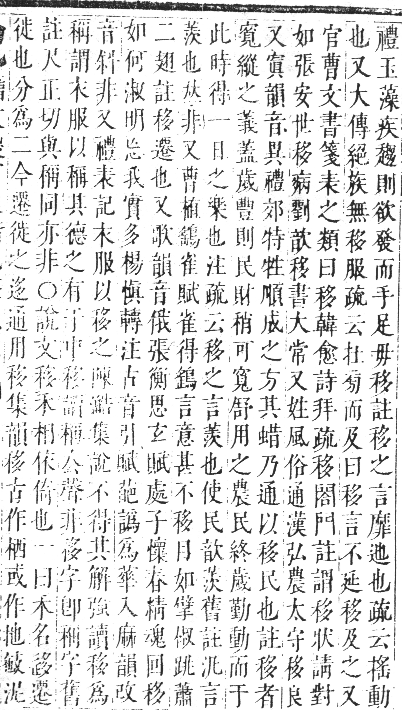 禮玉藻疾趨則欲發而手足毋移註移之言靡迆也疏云搖動
也又大傳絕族無移服疏云在旁而及曰移言不延移及之又
官曹文書箋表之類曰移韓愈詩拜疏移閤門註謂移狀請對
如張安世移病劉歆移書大常又姓風俗通漢弘農太守移良
又寘韻音異禮郊特牲順成之方其蜡乃通以移民也註移者
寬縱之義蓋歲豐則民財稍可寬舒用之農民終歲勤動而于
此時得一日之樂也注疏云移之言羨也使民歆羨舊註汎言
羨也幷非又曹植鷂雀賦雀得鷂言意甚不移目如擘椒跳蕭
二翅註移遷也又歌韻音俄張衡思玄賦處子懷春精魂回移
如何淑明忘我實多楊愼轉注古音引賦葩譌爲華入麻韻改
音斜非又禮表記衣服以移之陳澔集說不得其解強讀移爲
稱謂衣服以稱其德之有于中移謂稱去聲非移字卽稱字舊
註尺正切與稱同亦非○說文移禾相依倚也一曰禾名移遷
徙也分爲二今遷徙之迻通用移集韻移古作栘或作扡敡迡